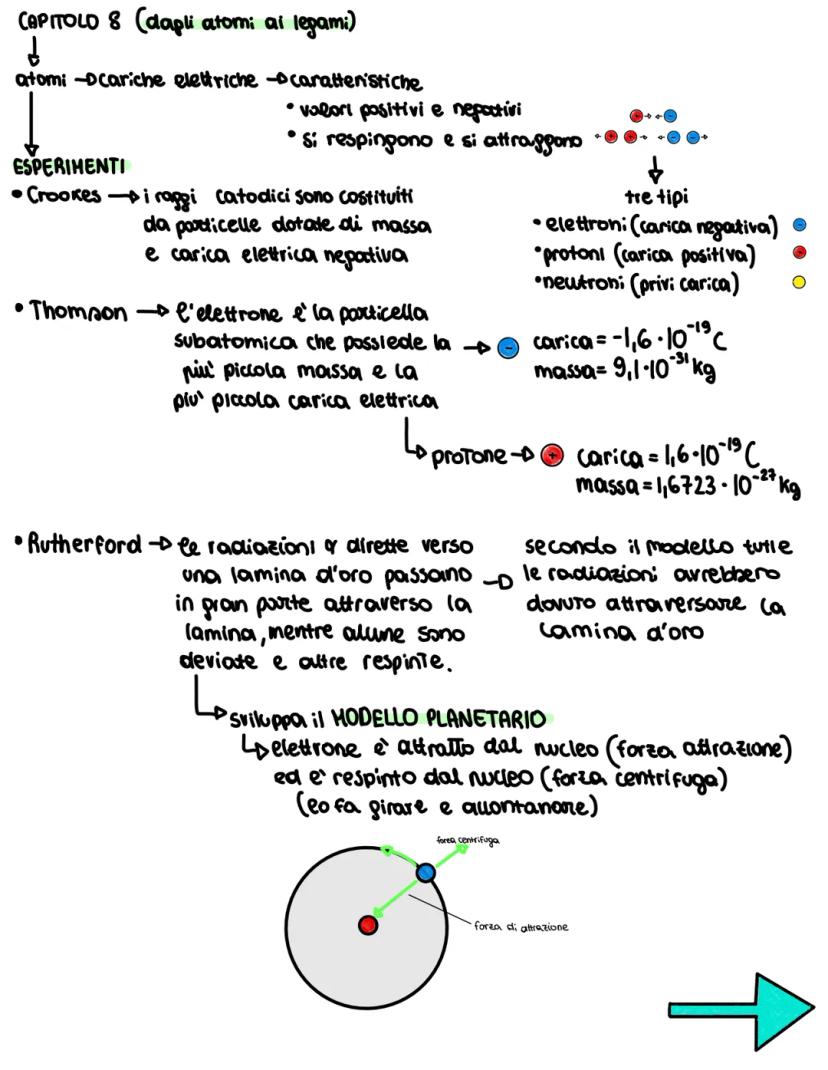 CAPITOLO 8 (dagli atomi ai legami)
atomi → cariche elettriche → caratteristiche
• valori positivi e negativi
• si respingono e si attraggono
+ → ← -
← + + → ← - - →
tre tipi
• elettroni (carica negativa) -
• protoni (carica positiva) +
• neutroni (privi carica)
ESPERIMENTI
• Crookes → i raggi catodici sono costituiti
da particelle dotate di massa
e carica elettrica negativa
• Thomson → l'elettrone è la particella
subatomica che possiede la → -
più piccola massa e la
più piccola carica elettrica
carica = -1,6 · 10⁻¹⁹ C
massa = 9,1 · 10⁻³¹ kg
protone → + carica = 1,6 · 10⁻¹⁹ C
massa = 1,6723 · 10⁻²⁷ kg
• Rutherford → le radiazioni α dirette verso
una lamina d'oro passano →
in gran parte attraverso la
lamina, mentre alcune sono
deviate e altre respinte.
secondo il modello tutte
le radiazioni avrebbero
dovuto attraversare la
lamina d'oro
sviluppa il MODELLO PLANETARIO
elettrone è attratto dal nucleo (forza attrazione)
ed è respinto dal nucleo (forza centrifuga)
(lo fa girare e allontanare)
forza centrifuga
forza di attrazione